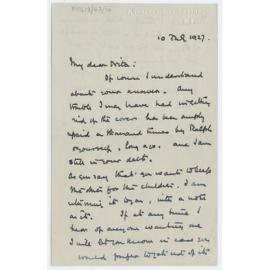 10 Feb 1927.
My dear Anita:
Of course I understand
about your answer. Any
trouble I may have had in getting
rid of the cover has been amply
repaid a thousand times by Ralph
or yourself, long ago. and I am
still in your debt.
As you say that you want to keep
the for the children, I am
returning it again, with a note
as it. If at any time I
hear of anyone wanting one
I will let you know in case you
would prefer to get out of it